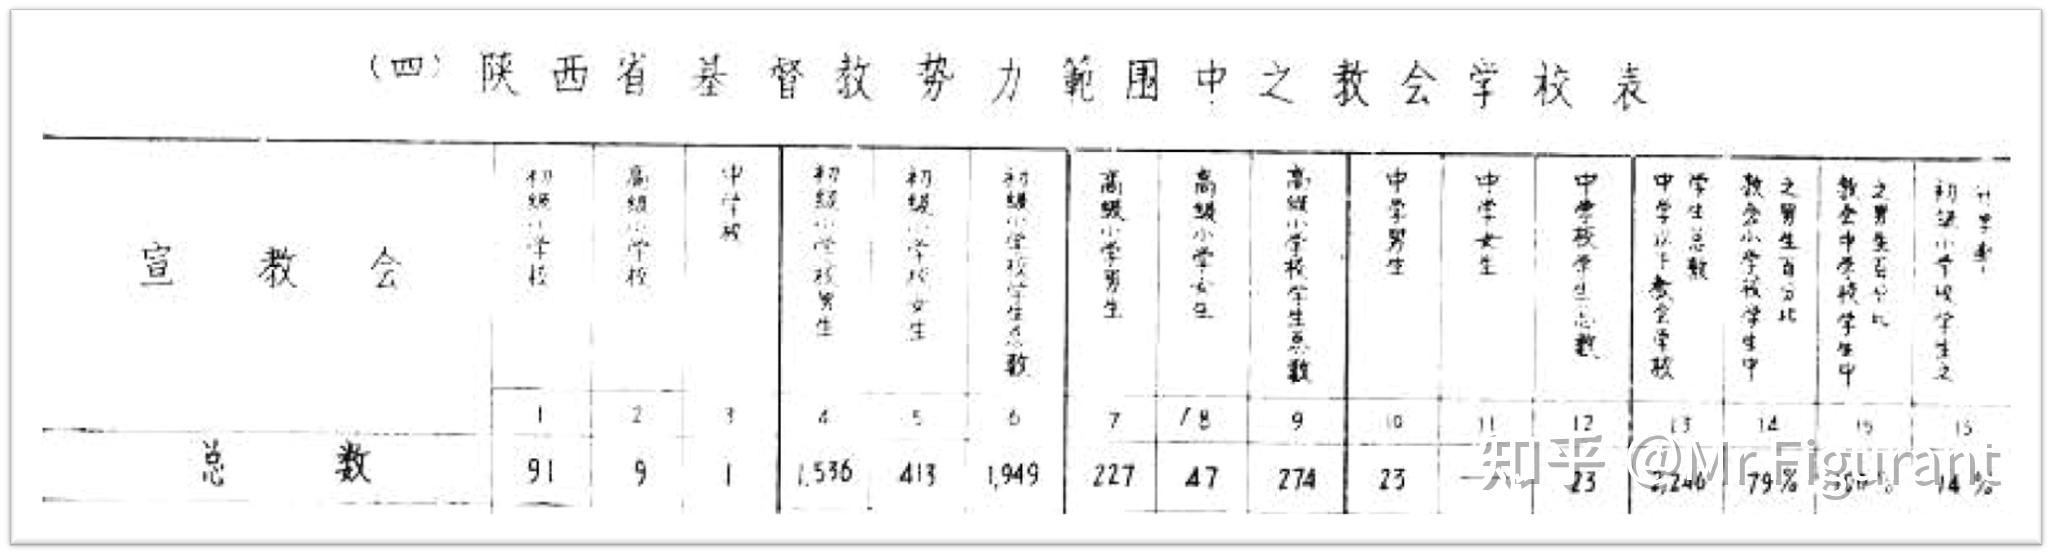 (四) 陕西省基督教势力範围中之教会学校表
宣教会
初级小学校
高级小学校
中学校
初级小学校男生
初级小学校女生
初级小学校学生总数
高级小学男生
高级小学女生
高级小学校学生总数
中学男生
中学女生
中学校学生总数
中学以下教会学校
学生总数
教会小学校学生中
之男生百分比
教会中学校学生中
之男生百分比
初级小学校学生之
升学率
1 2 3 4 5 6 7 8 9 10 11 12 13 14 15
总数 91 9 1 1,536 413 1,949 227 47 274 23 — 23 2,246 79% 14%
知乎 @Mr.Figurant